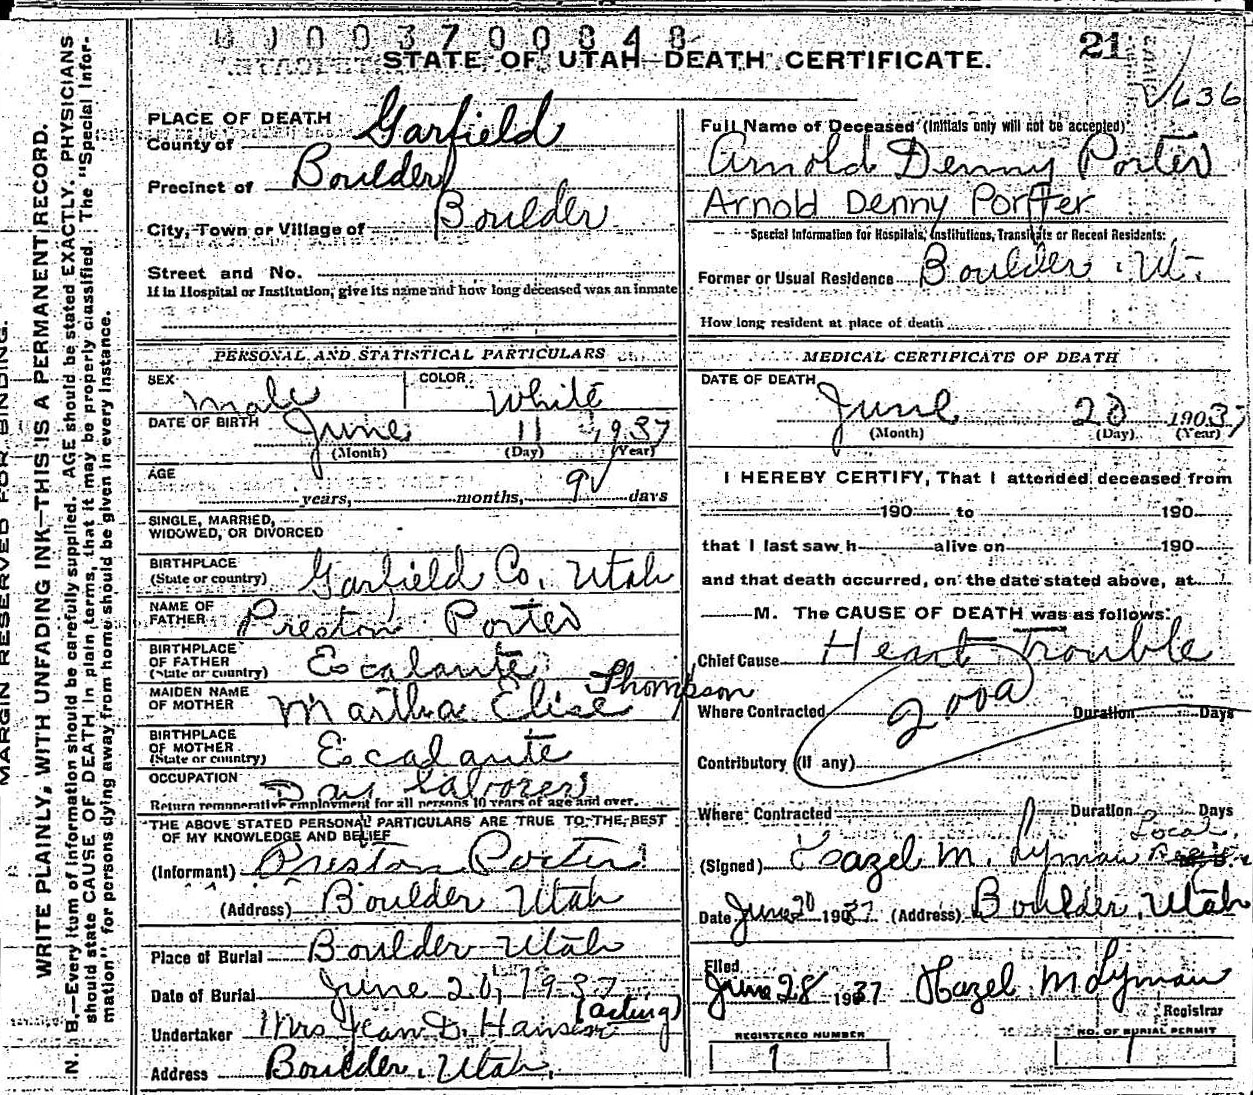 0 0 3 7 0 0 8 4 8
21
STATE OF UTAH—DEATH CERTIFICATE.
636
MARGIN RESERVED FOR BINDING.
WRITE PLAINLY, WITH UNFADING INK—THIS IS A PERMANENT RECORD.
N. B.—Every item of information should be carefully supplied. AGE should be stated EXACTLY. PHYSICIANS
should state CAUSE OF DEATH in plain terms, that it may be properly classified. The "Special Infor-
mation" for persons dying away from home should be given in every instance.
PLACE OF DEATH
County of Garfield
Precinct of Boulder
City, Town or Village of Boulder
Street and No.
If in Hospital or Institution, give its name and how long deceased was an inmate
PERSONAL AND STATISTICAL PARTICULARS
SEX Male COLOR White
DATE OF BIRTH June 11 1937
(Month) (Day) (Year)
AGE
years, months, 9 days
SINGLE, MARRIED,
WIDOWED, OR DIVORCED
BIRTHPLACE
(State or country) Garfield Co. Utah
NAME OF
FATHER Preston Porter
BIRTHPLACE
OF FATHER
(State or country) Escalante
MAIDEN NAME
OF MOTHER Martha Elise Thompson
BIRTHPLACE
OF MOTHER
(State or country) Escalante
OCCUPATION Day Laborer
Return remunerative employment for all persons 10 years of age and over.
THE ABOVE STATED PERSONAL PARTICULARS ARE TRUE TO THE BEST
OF MY KNOWLEDGE AND BELIEF
(Informant) Preston Porter
(Address) Boulder Utah
Place of Burial Boulder Utah
Date of Burial June 20, 1937
(acting)
Undertaker Mrs Jean D. Hansen
Address Boulder. Utah.
Full Name of Deceased (Initials only will not be accepted)
Arnold Denny Porter
Arnold Denny Porter
Special Information for Hospitals, Institutions, Transients or Recent Residents:
Former or Usual Residence Boulder. Ut.
How long resident at place of death
MEDICAL CERTIFICATE OF DEATH
DATE OF DEATH
June 20 190 37
(Month) (Day) (Year)
I HEREBY CERTIFY, That I attended deceased from
190 to 190
that I last saw h alive on 190
and that death occurred, on the date stated above, at
M. The CAUSE OF DEATH was as follows:
Chief Cause Heart Trouble
200a
Where Contracted Duration Days
Contributory (if any)
Where Contracted Duration Days
Local
(Signed) Hazel M. Lyman
Date June 20 1937 (Address) Boulder, Utah
Filed
June 28 1937 Hazel M Lyman
Registrar
REGISTERED NUMBER
1
NO. OF BURIAL PERMIT
1